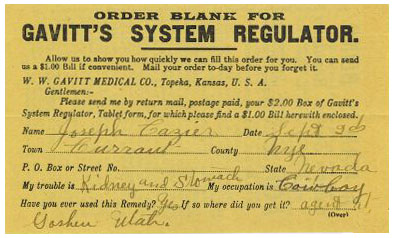 ORDER BLANK FOR
GAVITT'S SYSTEM REGULATOR.
Allow us to show you how quickly we can fill this order for you. You can send
us a $1.00 Bill if convenient. Mail your order to-day before you forget it.
W. W. GAVITT MEDICAL CO., Topeka, Kansas, U. S. A.
Gentlemen:-
Please send me by return mail, postage paid, your $2.00 Box of Gavitt's
System Regulator, Tablet form, for which please find a $1.00 Bill herewith enclosed.
Name Joseph Cazier Date Sept
Town Currant County Nye
P. O. Box or Street No. State Nevada
My trouble is Kidney and Stomach My occupation is Cowboy
Have you ever used this Remedy? Yes If so where did you get it? agent at
Goshen Utah.
(Over)